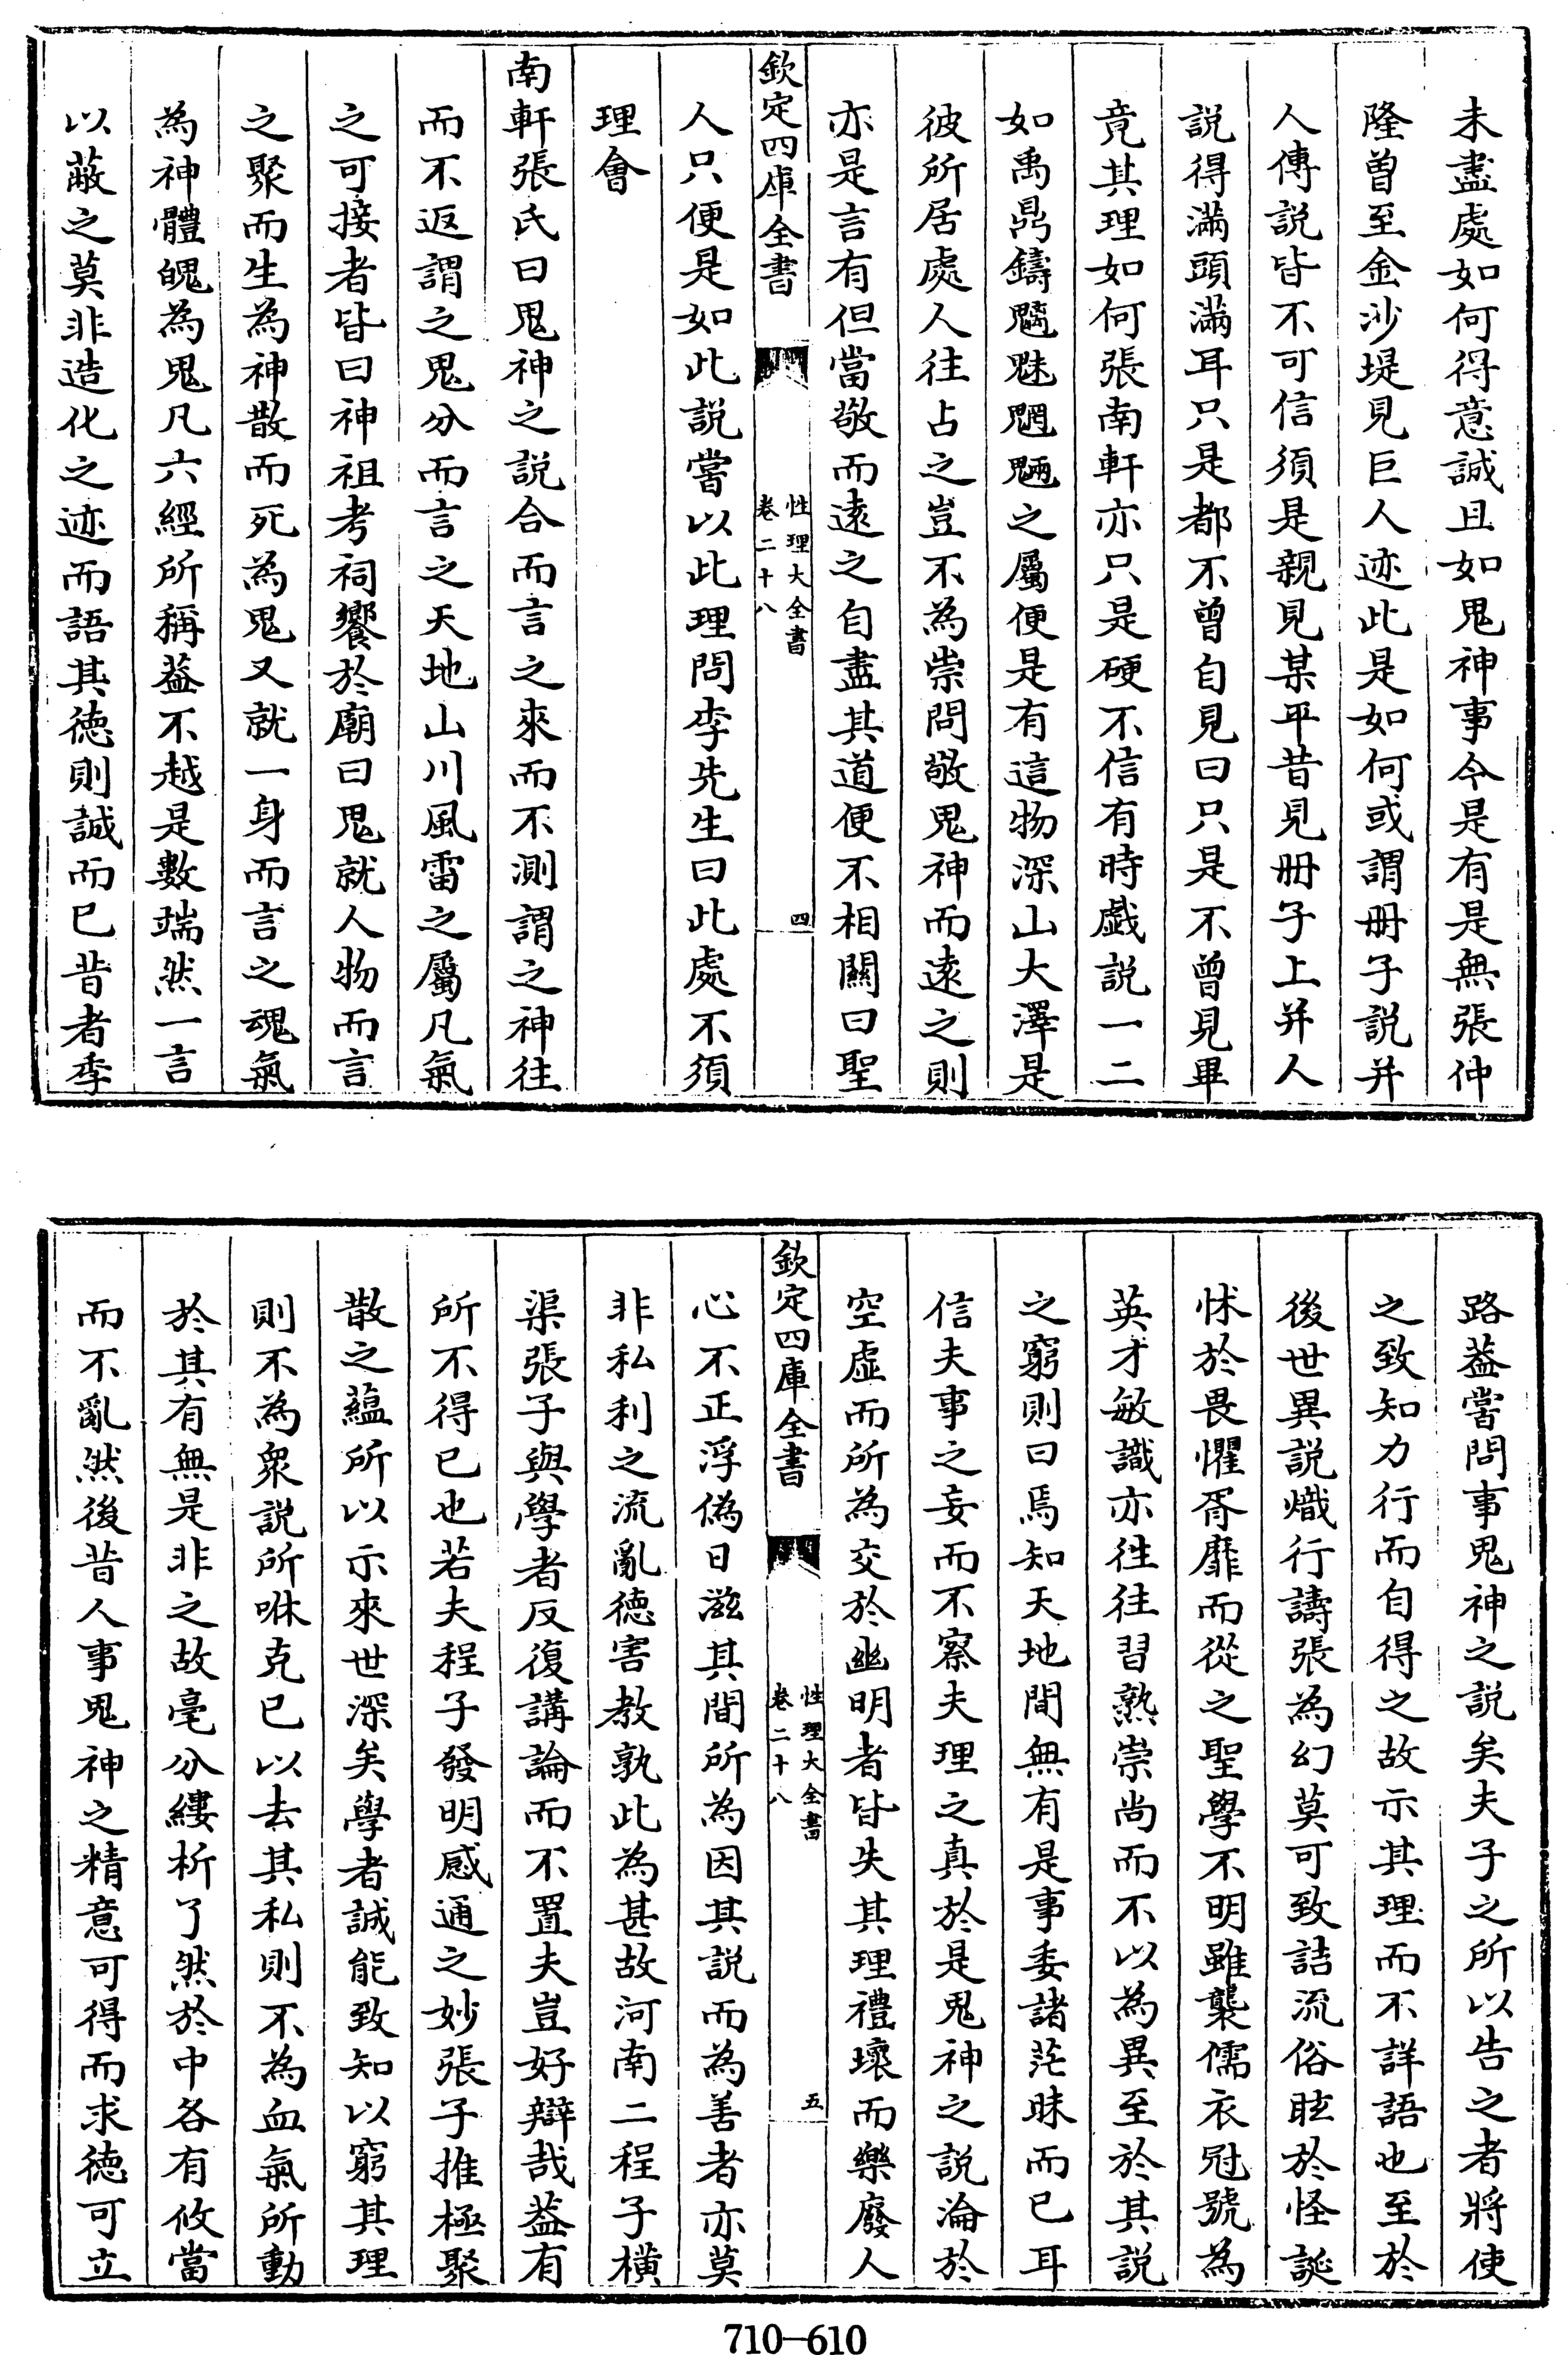 未盡處如何得意誠且如鬼神事今是有是無張仲
隆曾至金沙堤見巨人迹此是如何或謂冊子説并
人傳説皆不可信須是親見某平昔見冊子上并人
説得滿頭滿耳只是都不曾自見曰只是不曾見畢
竟其理如何張南軒亦只是硬不信有時戲説一二
如禹鼎鑄魑魅魍魎之屬便是有這物深山大澤是
彼所居處人往占之豈不為祟問敬鬼神而逺之則
亦是言有但當敬而逺之自盡其道便不相闗曰聖
欽定四庫全書
性理大全書
卷二十八
四
人只便是如此説嘗以此理問李先生曰此處不須
理會
南軒張氏曰鬼神之説合而言之來而不測謂之神往
而不返謂之鬼分而言之天地山川風雷之屬凡氣
之可接者皆曰神祖考祠饗於廟曰鬼就人物而言
之聚而生為神散而死為鬼又就一身而言之魂氣
為神體魄為鬼凡六經所稱葢不越是數端然一言
以蔽之莫非造化之迹而語其徳則誠而已昔者季
路葢嘗問事鬼神之説矣夫子之所以告之者將使
之致知力行而自得之故示其理而不詳語也至於
後世異説熾行譸張為幻莫可致詰流俗眩於怪誕
怵於畏懼胥靡而從之聖學不明雖襲儒衣冠號為
英才敏識亦徃往習熟崇尚而不以為異至於其説
之窮則曰焉知天地間無有是事委諸茫昧而已耳
信夫事之妄而不察夫理之真於是鬼神之説淪於
空虚而所為交於幽明者皆失其理禮壞而樂廢人
欽定四庫全書
性理大全書
卷二十八
五
心不正浮偽日滋其間所為因其説而為善者亦莫
非私利之流亂徳害教孰此為甚故河南二程子橫
渠張子與學者反復講論而不置夫豈好辯哉葢有
所不得已也若夫程子發明感通之妙張子推極聚
散之藴所以示來世深矣學者誠能致知以窮其理
則不為衆説所咻克已以去其私則不為血氣所動
於其有無是非之故毫分縷析了然於中各有攸當
而不亂然後昔人事鬼神之精意可得而求徳可立
710-610